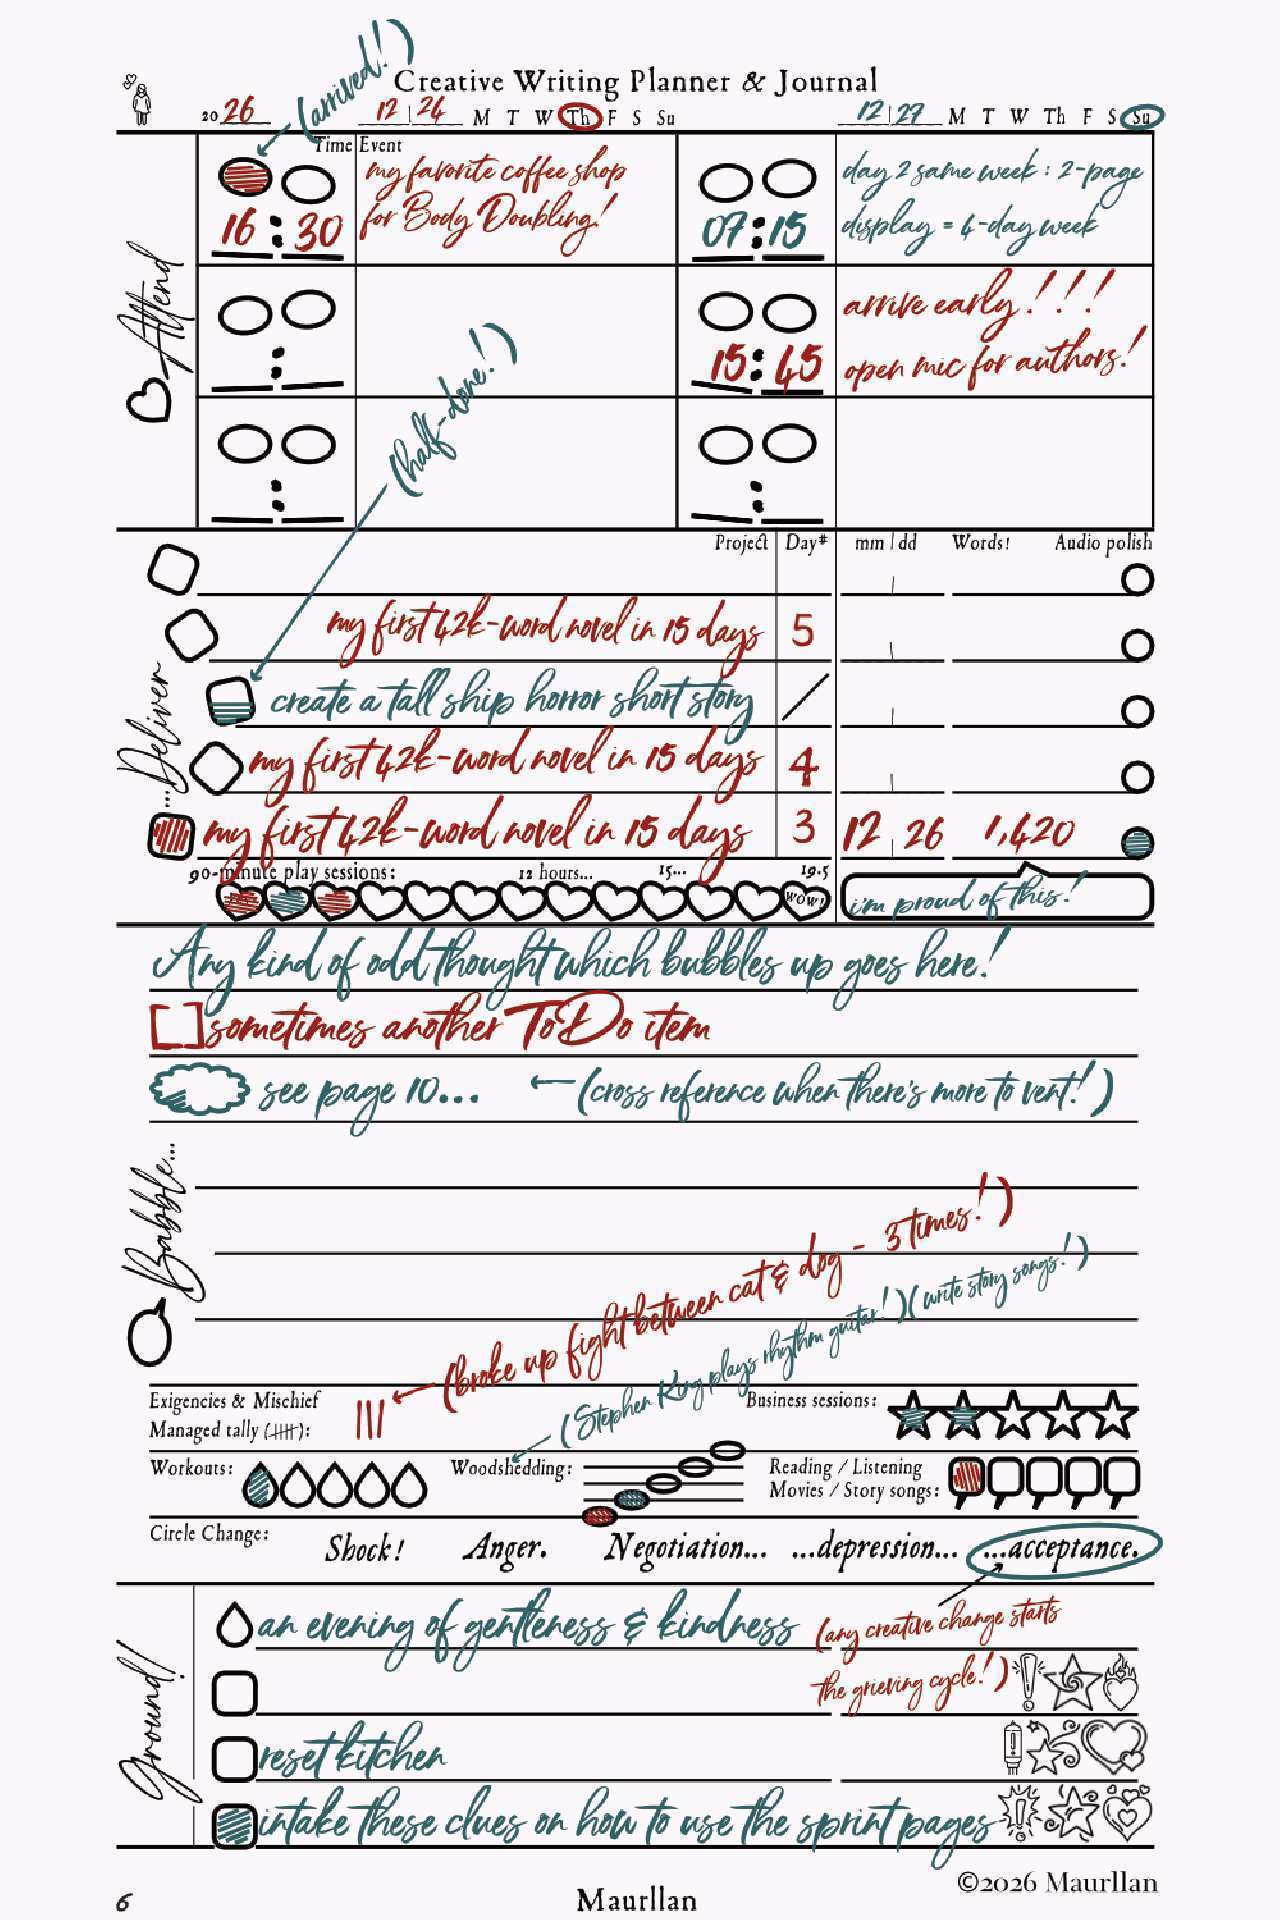 (arrived!)
Creative Writing Planner & Journal
20 26 12 | 24 M T W Th F S Su 12 | 27 M T W Th F S Su
Time Event
my favorite coffee shop
for Body Doubling!
16 : 30
day 2 same week : 2-page
display = 4-day week
07 : 15
Attend
arrive early!!!
open mic for authors!
15 : 45
(half-done!)
Project Day# mm / dd Words! Audio polish
my first 42k-word novel in 15 days 5
create a tall ship horror short story /
...Deliver
my first 42k-word novel in 15 days 4
my first 42k-word novel in 15 days 3 12 26 1,420
90-minute play sessions: 12 hours... 15... 19.5
WOW!
i'm proud of this!
Any kind of odd thought which bubbles up goes here!
[ ] sometimes another ToDo item
see page 10... ← (cross reference when there's more to vent!)
Babble...
(broke up fight between cat & dog - 3 times!)
(Stephen King plays rhythm guitar!) (write story songs!)
Exigencies & Mischief
Managed tally (卌): |||
Business sessions:
Workouts: Woodshedding: Reading / Listening
Movies / Story songs:
Circle Change: Shock! Anger. Negotiation... ...depression... ...acceptance.
an evening of gentleness & kindness (any creative change starts
the grieving cycle!)
Ground!
reset kitchen
intake these clues on how to use the sprint pages
©2026 Maurllan
6 Maurllan